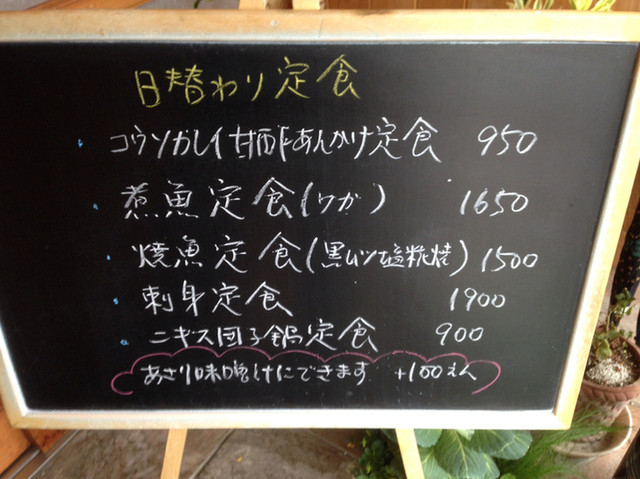 日替わり定食
・コウソカレイ甘酢あんかけ定食 950
・煮魚定食(ワガ) 1650
・焼魚定食(黒ムツ塩糀焼) 1500
・刺身定食 1900
・ニギス団子鍋定食 900
あさり味噌汁にできます +100えん